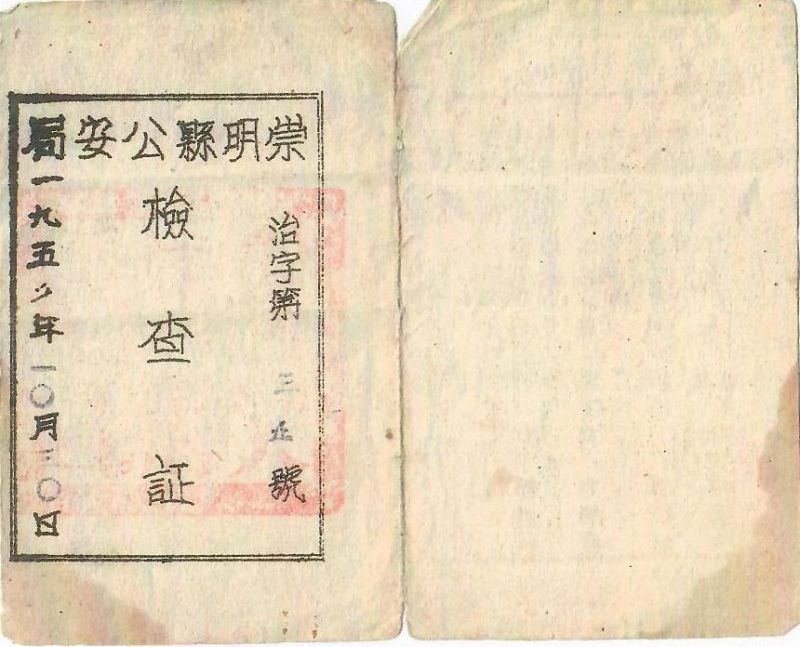 崇明縣公安局
治字第三 號
檢查証
一九五 年一〇月三〇日